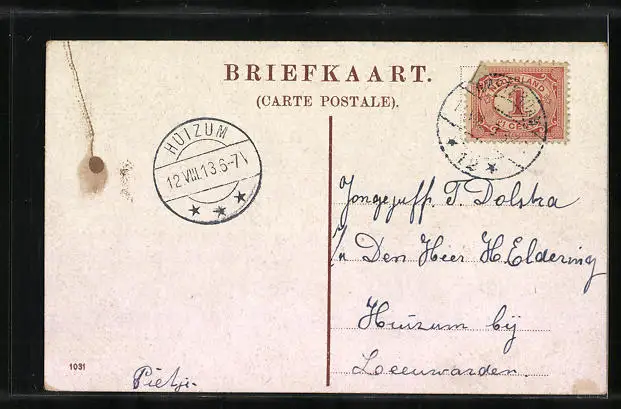 BRIEFKAART.
(CARTE POSTALE).
NEDERLAND
1
CENT
12
HUIZUM
12 VIII 13 6-7 V
Jongejuff. T. Dolstra
p/a Den Heer H. Eldering
Huizum bij
Leeuwarden.
1031
Pietje.